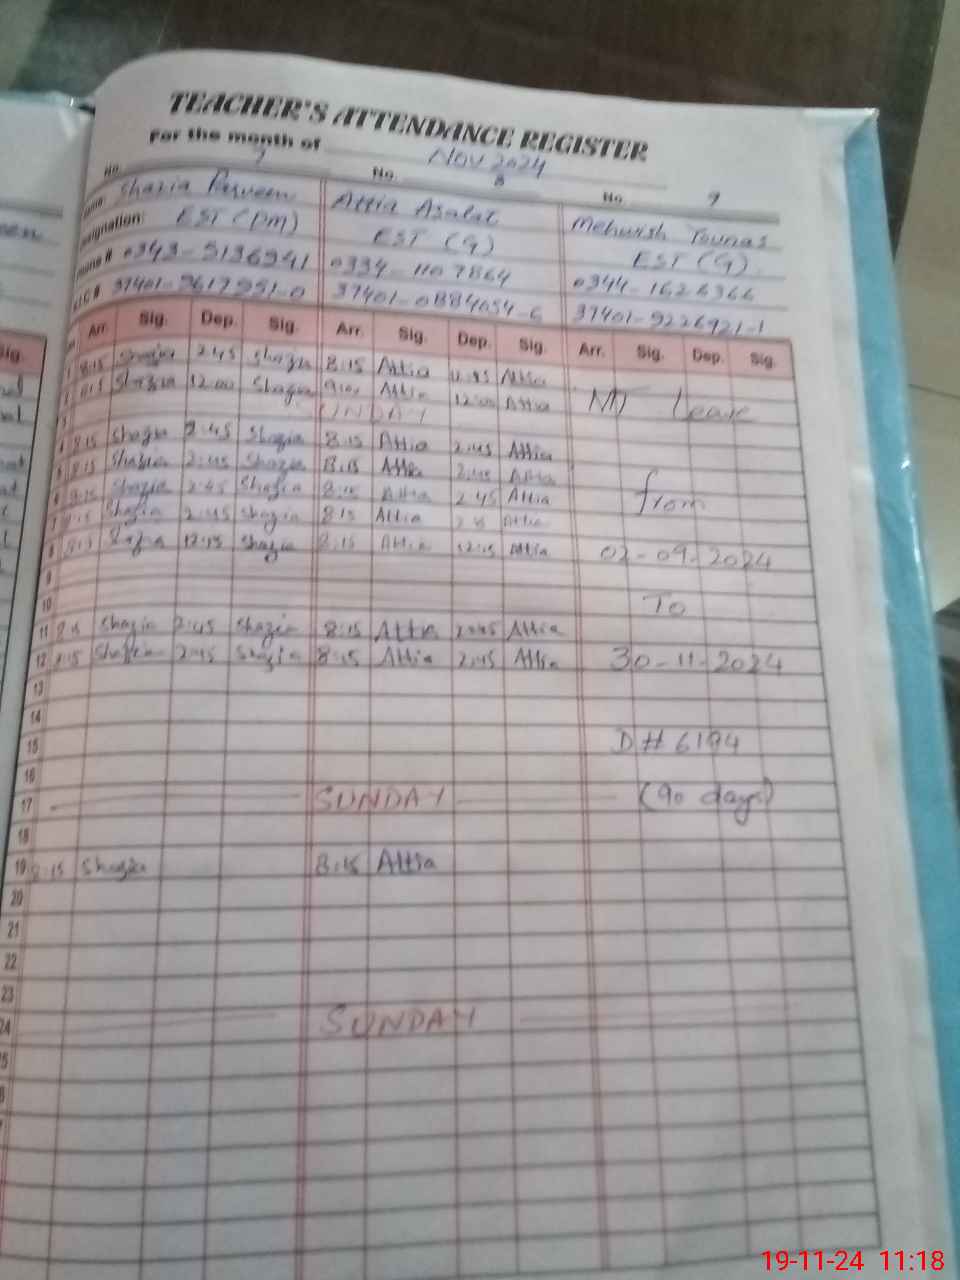 TEACHER'S ATTENDANCE REGISTER
For the month of Nov 2024
No. 7 No. 8 No. 9
Shazia Parveen Attia Asalat Mehwish Younas
EST (PM) EST (G) EST (G)
0343-5136941 0334-1107864 0344-1626366
37401-9617951-0 37401-0884054-6 37401-9226921-1
Arr. Sig. Dep. Sig. Arr. Sig. Dep. Sig. Arr. Sig. Dep. Sig.
1 8:15 Shazia 2:45 Shazia 8:15 Attia Attia
2 Shazia 12:00 Shazia 9:00 Attia 12:00 Attia Leave
3 SUNDAY
4 8:15 Shazia 2:45 Shazia 8:15 Attia 2:45 Attia
5 8:15 Shazia 2:45 Shazia 8:15 Attia 2:45 Attia
6 8:15 Shazia 2:45 Shazia 8:15 Attia 2:45 Attia from
7 8:15 Shazia 2:45 Shazia 8:15 Attia Attia
8 8:15 Shazia 12:15 Shazia 8:15 Attia 12:15 Attia 02-09-2024
9
10 To
11 8:15 Shazia 2:45 Shazia 8:15 Attia 2:45 Attia
12 8:15 Shazia 2:45 Shazia 8:15 Attia 2:45 Attia 30-11-2024
13
14
15 D# 6194
16
17 SUNDAY (90 days)
18
19 8:15 Shazia 8:15 Attia
20
21
22
23
24 SUNDAY
19-11-24 11:18